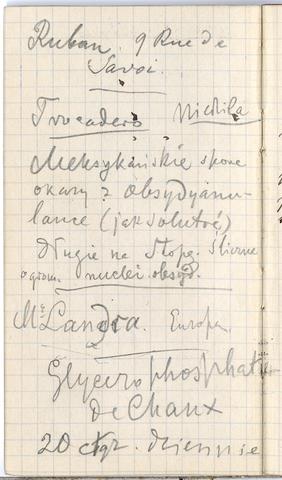 Ruban. 9 Rue de
Savoi.
Trocadero
Meksykańskie spore
okazy z obsydyanu-
lance (jak Solutré)
długie na stopę. Śliczne
ogrom. nuclei obsyd.
Mᶜ Landra. Europa
Glycerophosphate
de Chaux
20 ctgr. dziennie